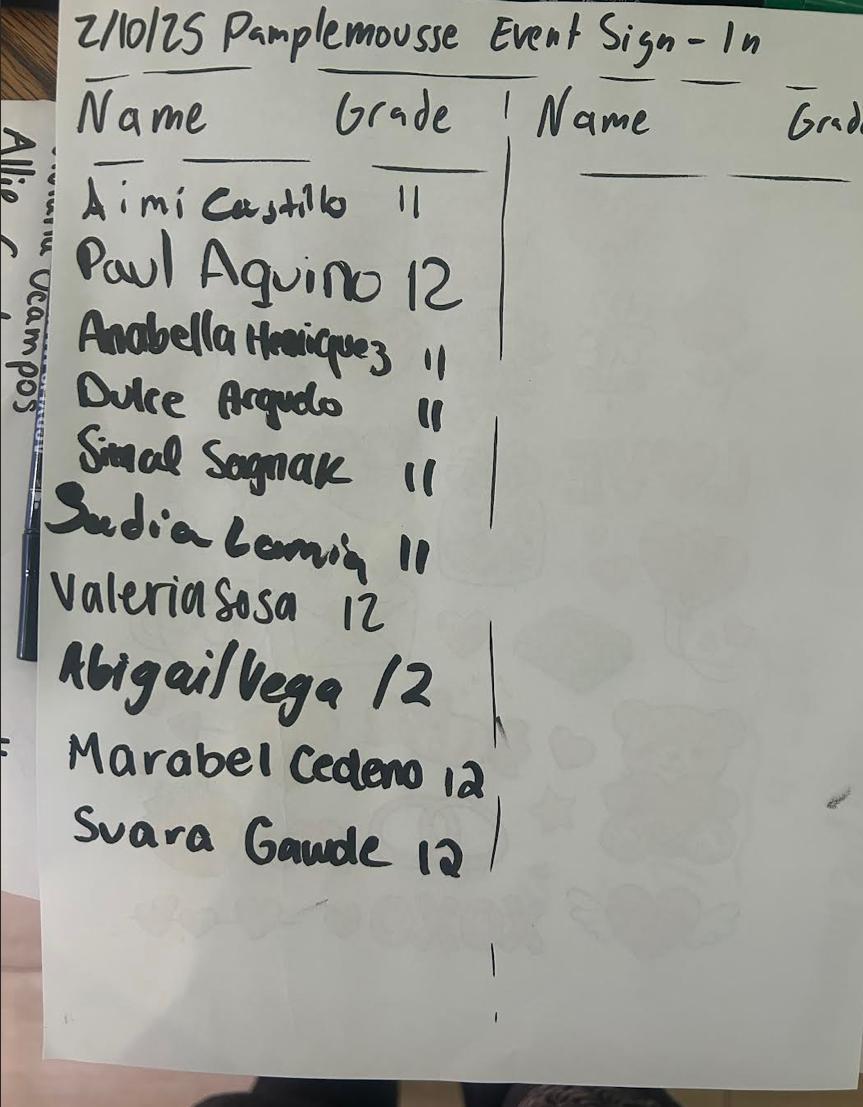 2/10/25 Pamplemousse Event Sign-In
Name Grade Name Grad
Aimi Castillo 11
Paul Aquino 12
Anabella Henriquez 11
Dulce Argudo 11
Simal Sagnak 11
Sudia Lamia 11
Valeria Sosa 12
Abigail Vega 12
Marabel Cedeno 12
Svara Gawde 12
Ocampos
Allie